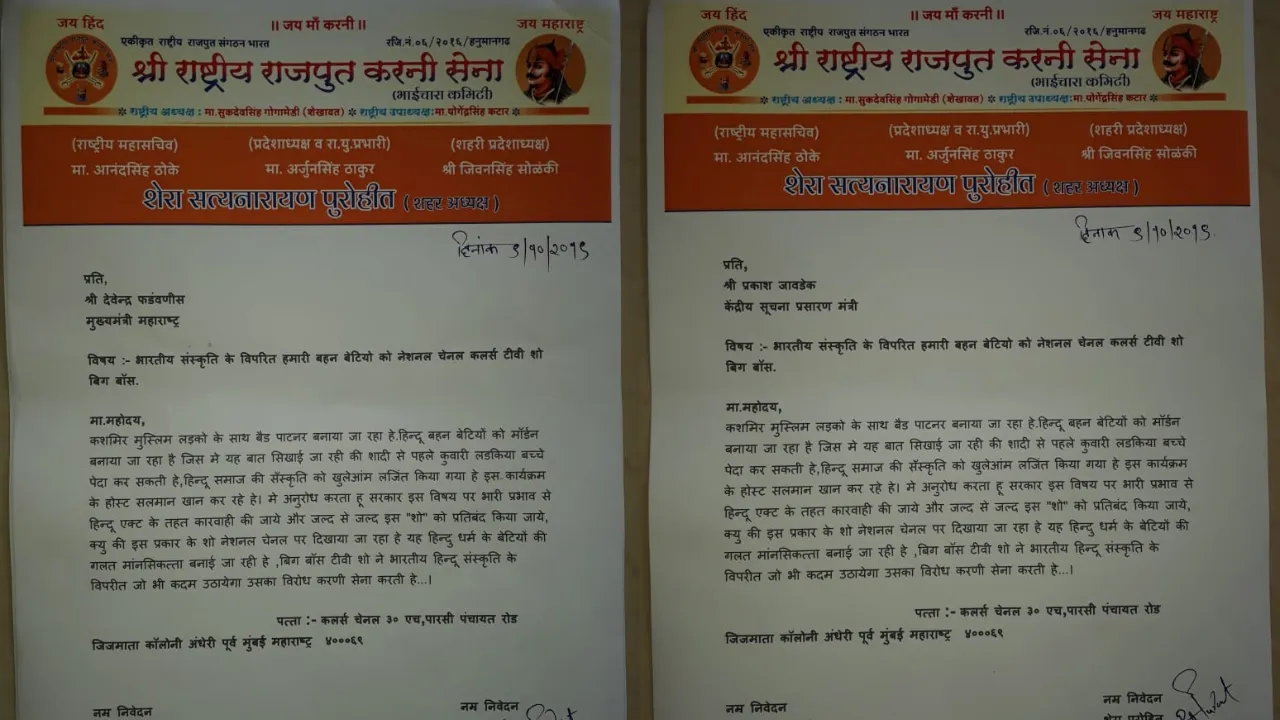 जय हिंद
॥ जय माँ करनी ॥
जय महाराष्ट्र
एकीकृत राष्ट्रीय राजपुत संगठन भारत
रजि.नं.०६/२०१६/हनुमानगढ
श्री राष्ट्रीय राजपुत करनी सेना
(भाईचारा कमिटी)
राष्ट्रीय अध्यक्ष : मा.सुकदेवसिंह गोगामेडी (शेखावत) राष्ट्रीय उपाध्यक्ष:मा.योगेंद्रसिंह कटार
(राष्ट्रीय महासचिव) (प्रदेशाध्यक्ष व रा.यु.प्रभारी) (शहरी प्रदेशाध्यक्ष)
मा. आनंदसिंह ठोके मा. अर्जुनसिंह ठाकुर श्री जिवनसिंह सोळंकी
शेरा सत्यनारायण पुरोहीत ( शहर अध्यक्ष )
दिनांक ९/१०/२०१९
प्रति,
श्री देवेन्द्र फडंवणीस
मुख्यमंत्री महाराष्ट्र
विषय :- भारतीय संस्कृति के विपरित हमारी बहन बेटियो को नेशनल चेनल कलर्स टीवी शो
बिग बॉस.
मा.महोदय,
कशमिर मुस्लिम लड़को के साथ बैड पाटनर बनाया जा रहा हे.हिन्दू बहन बेटियों को मॉर्डन
बनाया जा रहा है जिस मे यह बात सिखाई जा रही की शादी से पहले कुवारी लडकिया बच्चे
पेदा कर सकती हे,हिन्दू समाज की सँस्कृति को खुलेआंम लजिंत किया गया हे इस कार्यक्रम
के होस्ट सलमान खान कर रहे हे। मे अनुरोध करता हू सरकार इस विषय पर भारी प्रभाव से
हिन्दू एक्ट के तहत कारवाही की जाये और जल्द से जल्द इस "शो" को प्रतिबंद किया जाये,
क्यु की इस प्रकार के शो नेशनल चेनल पर दिखाया जा रहा हे यह हिन्दु धर्म के बेटियों की
गलत मांनसिकत्ता बनाई जा रही हे ,बिग बॉस टीवी शो ने भारतीय हिन्दू संस्कृति के
विपरीत जो भी कदम उठायेगा उसका विरोध करणी सेना करती हे...।
पत्ता :- कलर्स चेनल ३० एच,पारसी पंचायत रोड
जिजमाता कॉलोनी अंधेरी पूर्व मुंबई महाराष्ट्र ४०००६९
नम निवेदन
नम निवेदन
जय हिंद
॥ जय माँ करनी ॥
जय महाराष्ट्र
एकीकृत राष्ट्रीय राजपुत संगठन भारत
रजि.नं.०६/२०१६/हनुमानगढ
श्री राष्ट्रीय राजपुत करनी सेना
(भाईचारा कमिटी)
राष्ट्रीय अध्यक्ष : मा.सुकदेवसिंह गोगामेडी (शेखावत) राष्ट्रीय उपाध्यक्ष:मा.योगेंद्रसिंह कटार
(राष्ट्रीय महासचिव) (प्रदेशाध्यक्ष व रा.यु.प्रभारी) (शहरी प्रदेशाध्यक्ष)
मा. आनंदसिंह ठोके मा. अर्जुनसिंह ठाकुर श्री जिवनसिंह सोळंकी
शेरा सत्यनारायण पुरोहीत ( शहर अध्यक्ष )
दिनांक ९/१०/२०१९
प्रति,
श्री प्रकाश जावडेक
केंद्रीय सूचना प्रसारण मंत्री
विषय :- भारतीय संस्कृति के विपरित हमारी बहन बेटियो को नेशनल चेनल कलर्स टीवी शो
बिग बॉस.
मा.महोदय,
कशमिर मुस्लिम लड़को के साथ बैड पाटनर बनाया जा रहा हे.हिन्दू बहन बेटियों को मॉर्डन
बनाया जा रहा है जिस मे यह बात सिखाई जा रही की शादी से पहले कुवारी लडकिया बच्चे
पेदा कर सकती हे,हिन्दू समाज की सँस्कृति को खुलेआंम लजिंत किया गया हे इस कार्यक्रम
के होस्ट सलमान खान कर रहे हे। मे अनुरोध करता हू सरकार इस विषय पर भारी प्रभाव से
हिन्दू एक्ट के तहत कारवाही की जाये और जल्द से जल्द इस "शो" को प्रतिबंद किया जाये,
क्यु की इस प्रकार के शो नेशनल चेनल पर दिखाया जा रहा हे यह हिन्दु धर्म के बेटियों की
गलत मांनसिकत्ता बनाई जा रही हे ,बिग बॉस टीवी शो ने भारतीय हिन्दू संस्कृति के
विपरीत जो भी कदम उठायेगा उसका विरोध करणी सेना करती हे...।
पत्ता :- कलर्स चेनल ३० एच,पारसी पंचायत रोड
जिजमाता कॉलोनी अंधेरी पूर्व मुंबई महाराष्ट्र ४०००६९
नम निवेदन
नम निवेदन